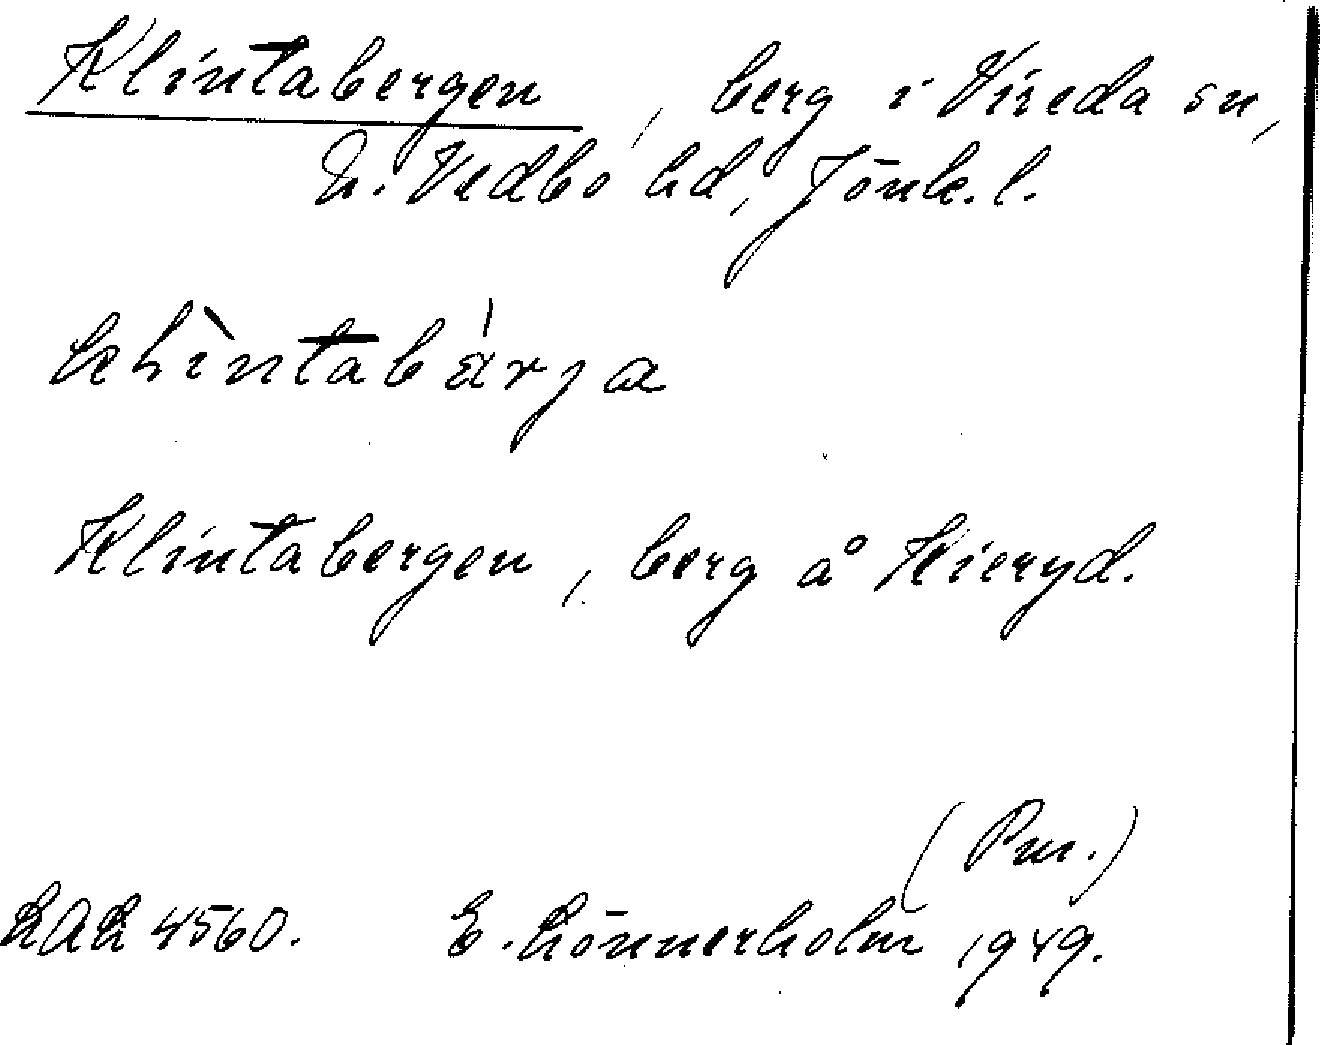 Klintabergen, berg i Vireda sn,
N. Vedbo hd, Jönk. l.
kLìntabárja
Klintabergen, berg å Kieryd.
(Pm.)
LAL 4560. E. Lönnerholm 1949.